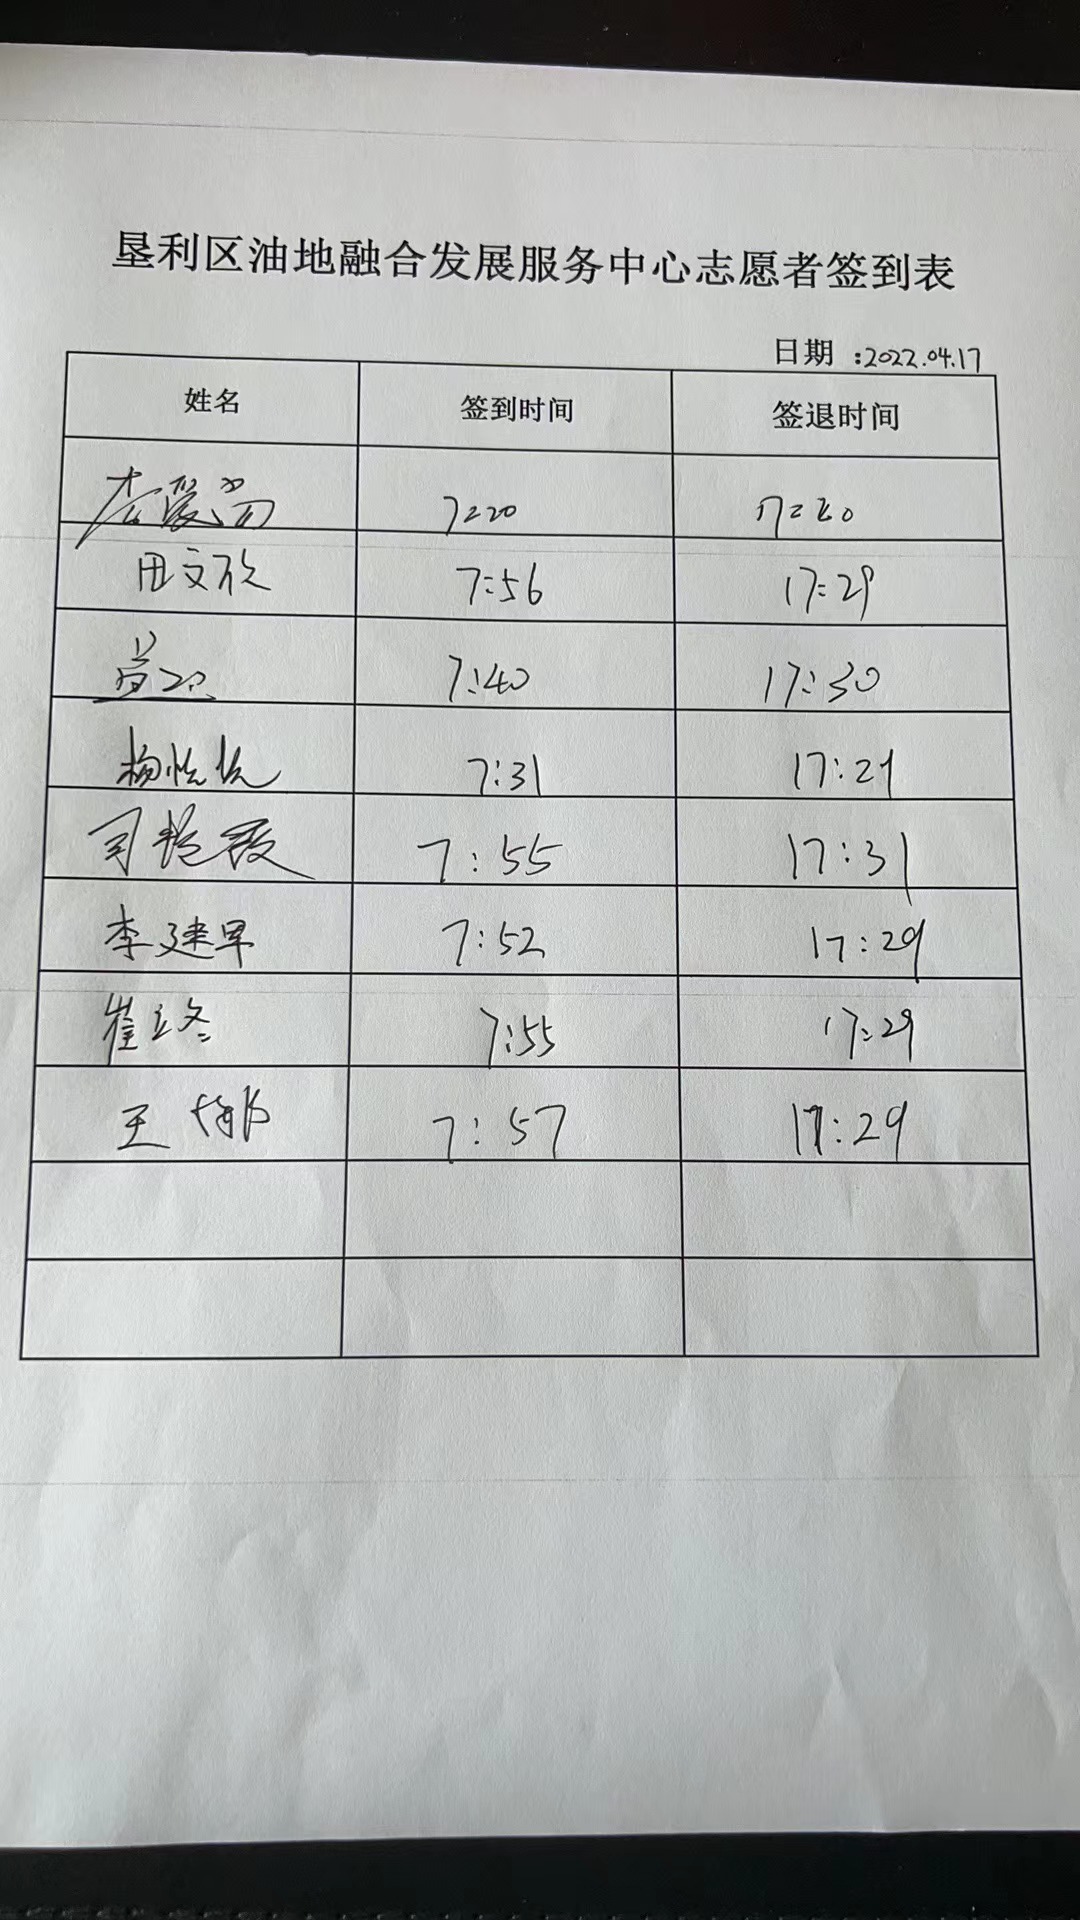 垦利区油地融合发展服务中心志愿者签到表
日期 :2022.04.17
姓名 签到时间 签退时间
7:20
田文欣 7:56 17:29
7:40 17:30
杨 7:31 17:29
司艳霞 7:55 17:31
李建军 7:52 17:29
崔立冬 7:55 17:29
王 7:57 17:29